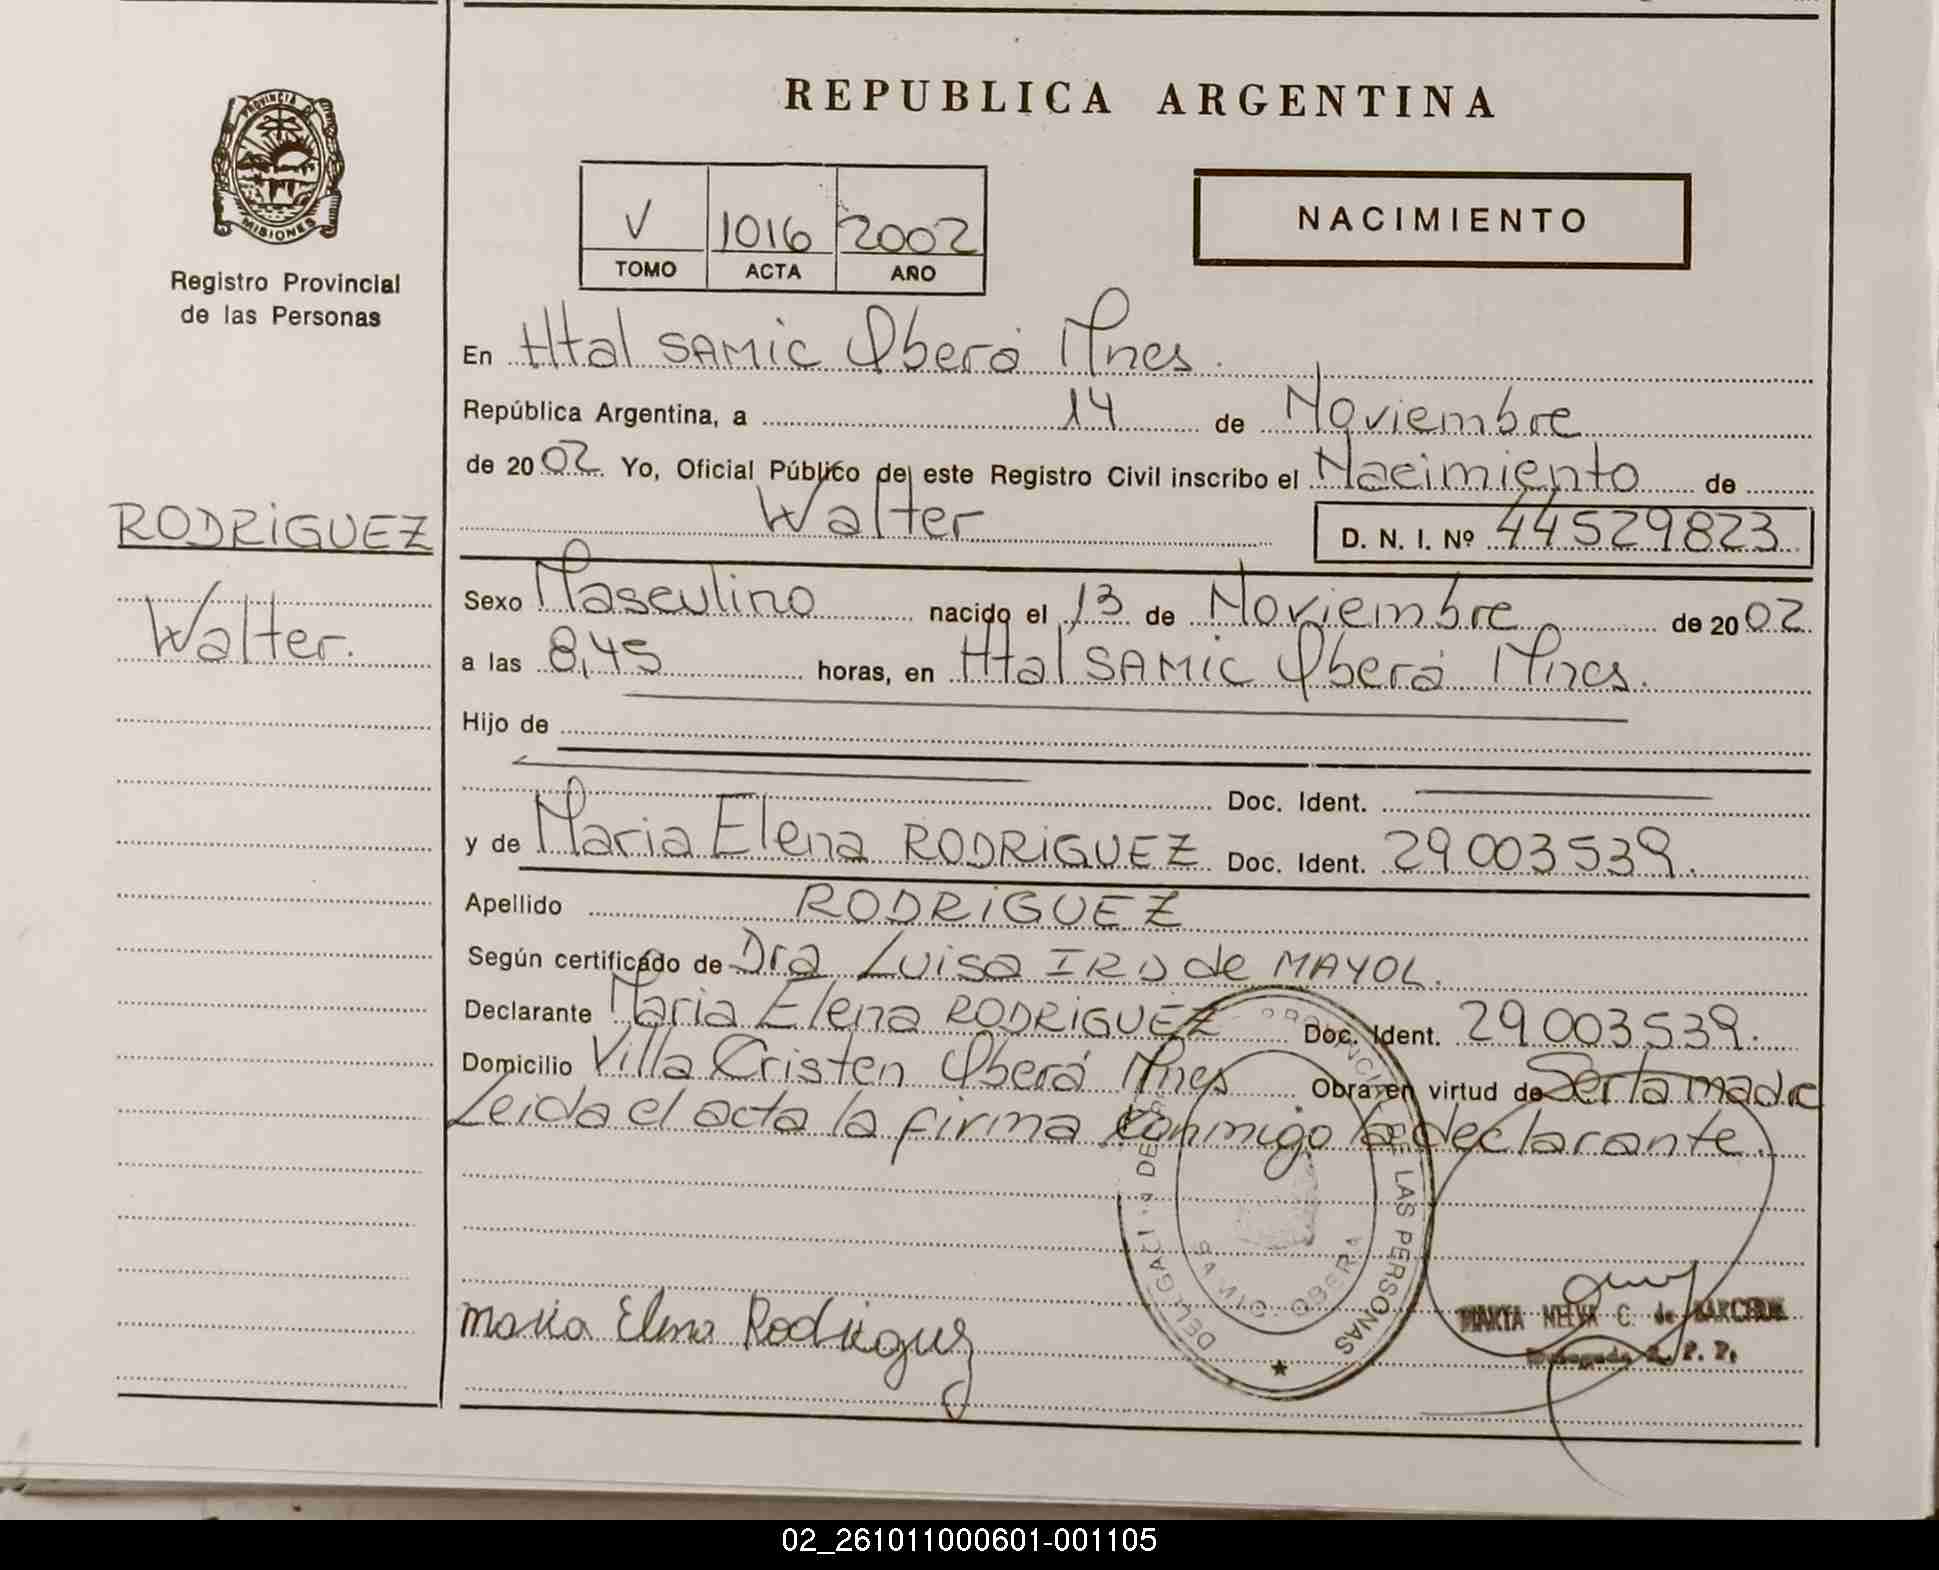 REPUBLICA ARGENTINA
PROVINCIA DE
MISIONES
Registro Provincial
de las Personas
V 1016 2002
TOMO ACTA AÑO
NACIMIENTO
En Htal SAMIC Oberá Mnes.
República Argentina, a 14 de Noviembre
de 2002 Yo, Oficial Público de este Registro Civil inscribo el Nacimiento de
Walter D. N. I. Nº 44529823
RODRIGUEZ
Walter.
Sexo Masculino nacido el 13 de Noviembre de 2002
a las 8,45 horas, en Htal SAMIC Oberá Mnes.
Hijo de
Doc. Ident.
y de Maria Elena RODRIGUEZ Doc. Ident. 29003539.
Apellido RODRIGUEZ
Según certificado de Dra Luisa IRD de MAYOL.
Declarante Maria Elena RODRIGUEZ Doc. Ident. 29003539.
Domicilio Villa Cristen Oberá Mnes Obra en virtud de Ser la madre
Leida el acta la firma conmigo la declarante.
LAS PERSONAS
OBERA
Maria Elena Rodriguez
MARTA C. de
02_261011000601-001105